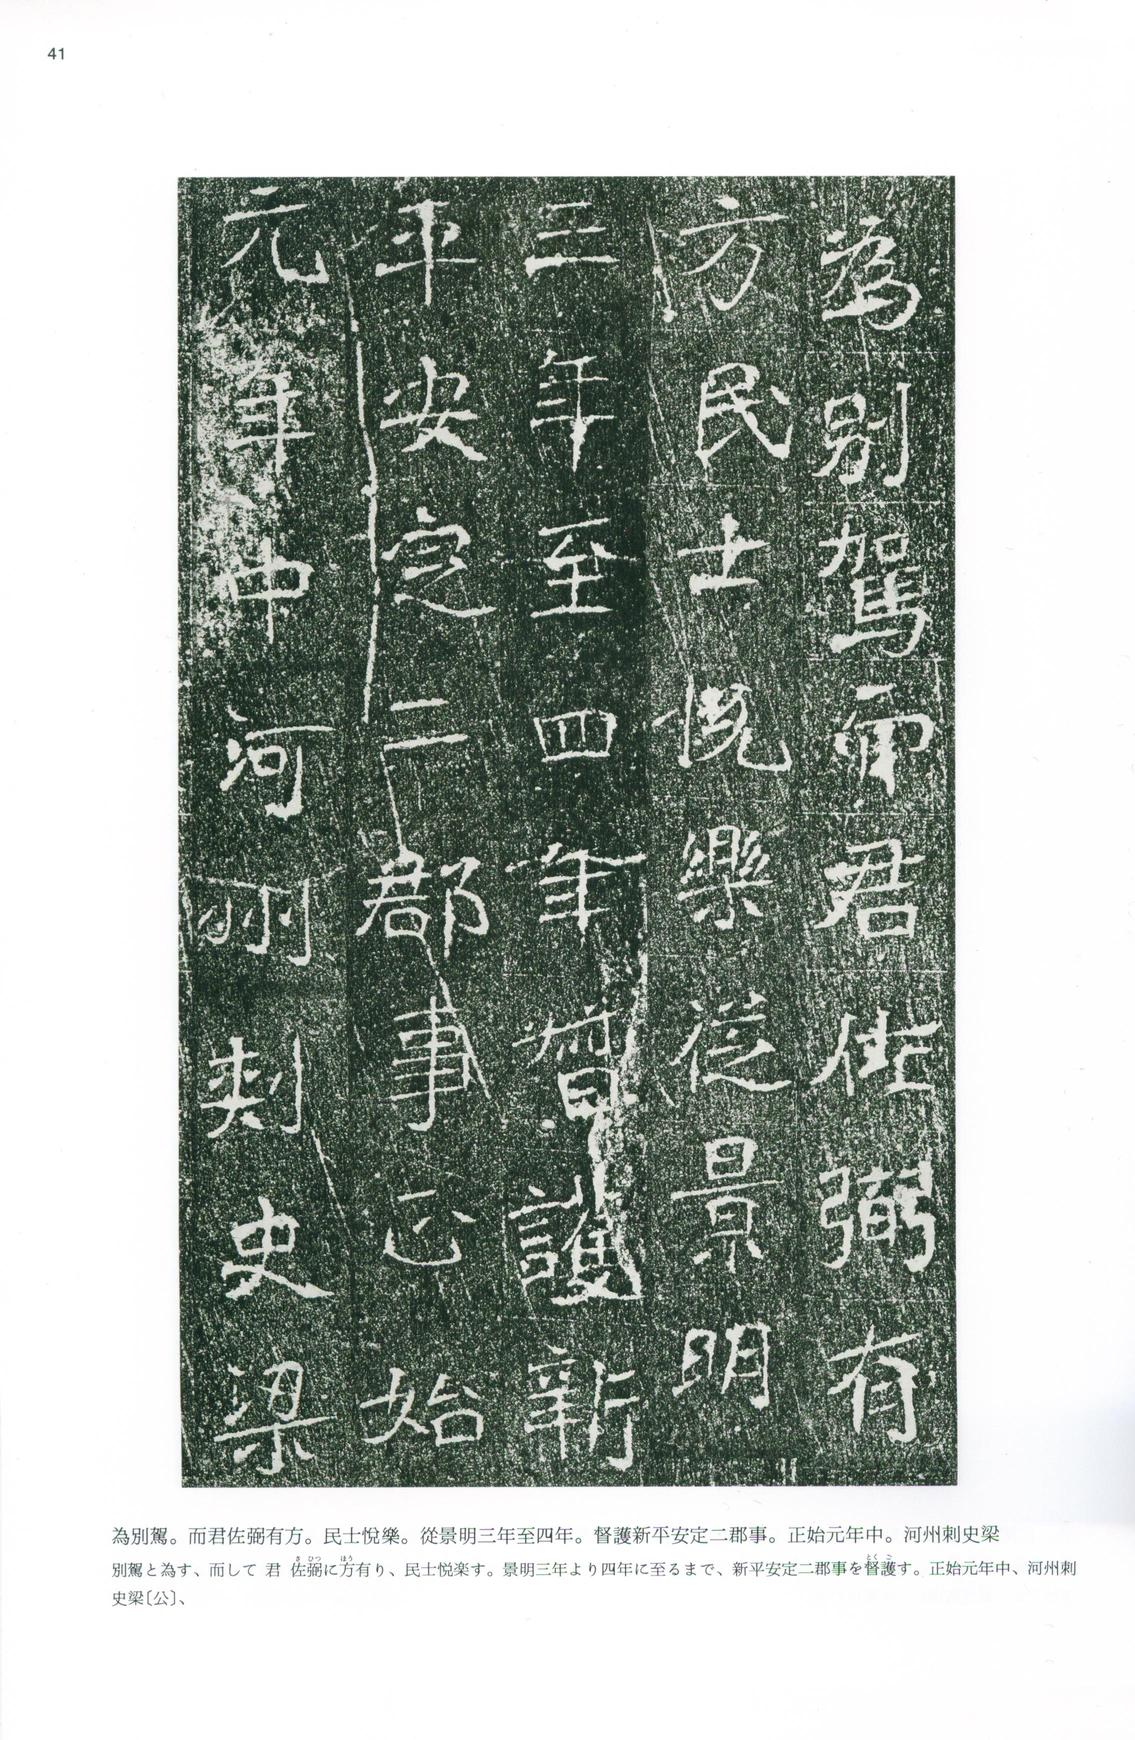 41
為別駕而君佐弼有
方民士悅樂從景明
三年至四年督護新
平安定二郡事正始
元年中河州刺史梁
為別駕。而君佐弼有方。民士悅樂。從景明三年至四年。督護新平安定二郡事。正始元年中。河州刺史梁
別駕と為す、而して君佐弼に方有り、民士悦楽す。景明三年より四年に至るまで、新平安定二郡事を督護す。正始元年中、河州刺
史梁〔公〕、